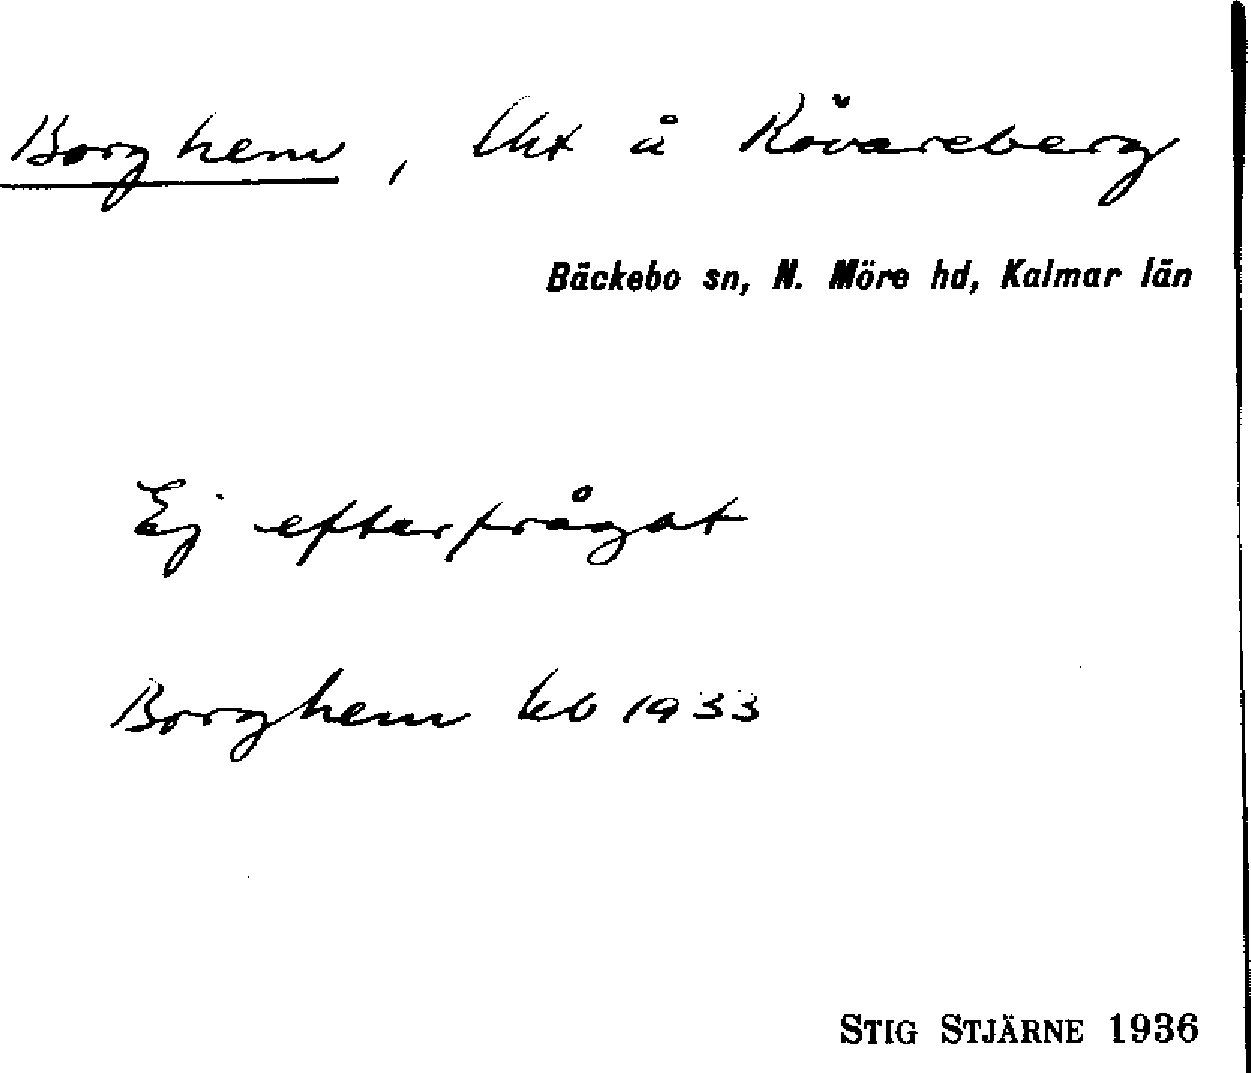 Borghem, lht å Rövareberg
Bäckebo sn, N. Möre hd, Kalmar län
Ej efterfrågat
Borghem kb 1933
STIG STJÄRNE 1936